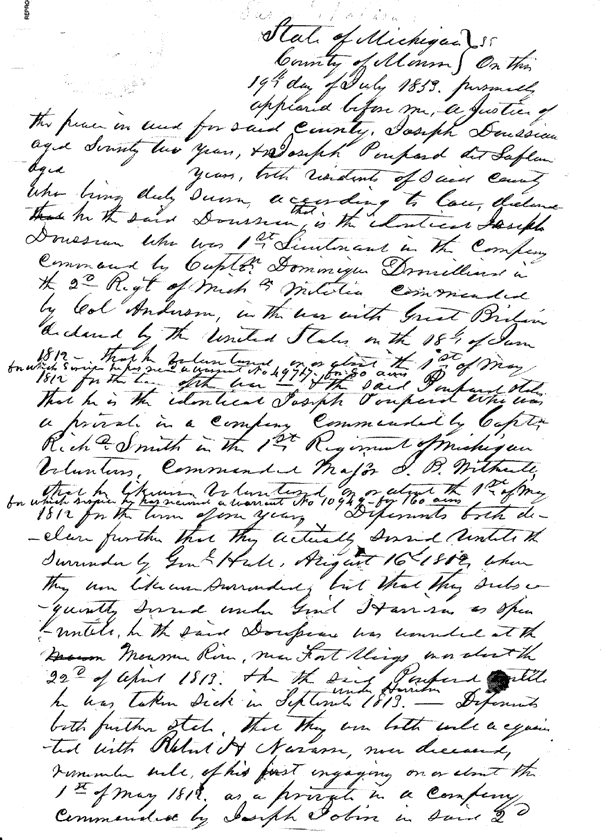 State of Michigan } SS
County of Monroe } On this
19th day of July 1853. personally
appeared before me, a Justice of
the peace in and for said County, Joseph Doussian
aged Seventy two years, & Joseph Poupard dit Lafleur
aged years, both residents of said County
who being duly sworn, according to law, declare
that he the said Doussian is the identical Joseph
Doussian who was 1st Lieutenant in the Company
Command by Captn Dominique
the 2d Regt of Mich Militia Commanded
by Col Anderson, in the war with Great Britain
declared by the United States on the 18th of June
1812 - that he Volunteered, on or about the 1st of May
for which service he has recd a warrant No for 80 acres
1812 for the term of the war — & the said Poupard states
that he is the identical Joseph Poupard who was
a private in a Company Commanded by Captn
Richd Smith in the 1st Regiment of Michigan
Volunteers, Commanded Major
that he likewise Volunteered on or about the 1st of May
for which service he has received a warrant No for 160 acres
1812 for the term of one year, Deponents both de-
-clare further that they actually served untill the
surrender by Genl Hull, August 16th 1812, when
they were likewise surrended, but that they subse-
-quently served under Genl Harrison as
he the said Doussian was wounded at the
Maumee River, near Fort Meigs on or about the
22d of April 1813. & he the said Poupard untill
under Harrison
he was taken sick in September 1813. — Deponents
both further state, that they were both well acquain
ted with Robert H Navarre, now deceased,
remember well, of his first engaging on or about the
1st of May 1812. as a private in a Company
Commanded by Joseph Jobin in said 2d